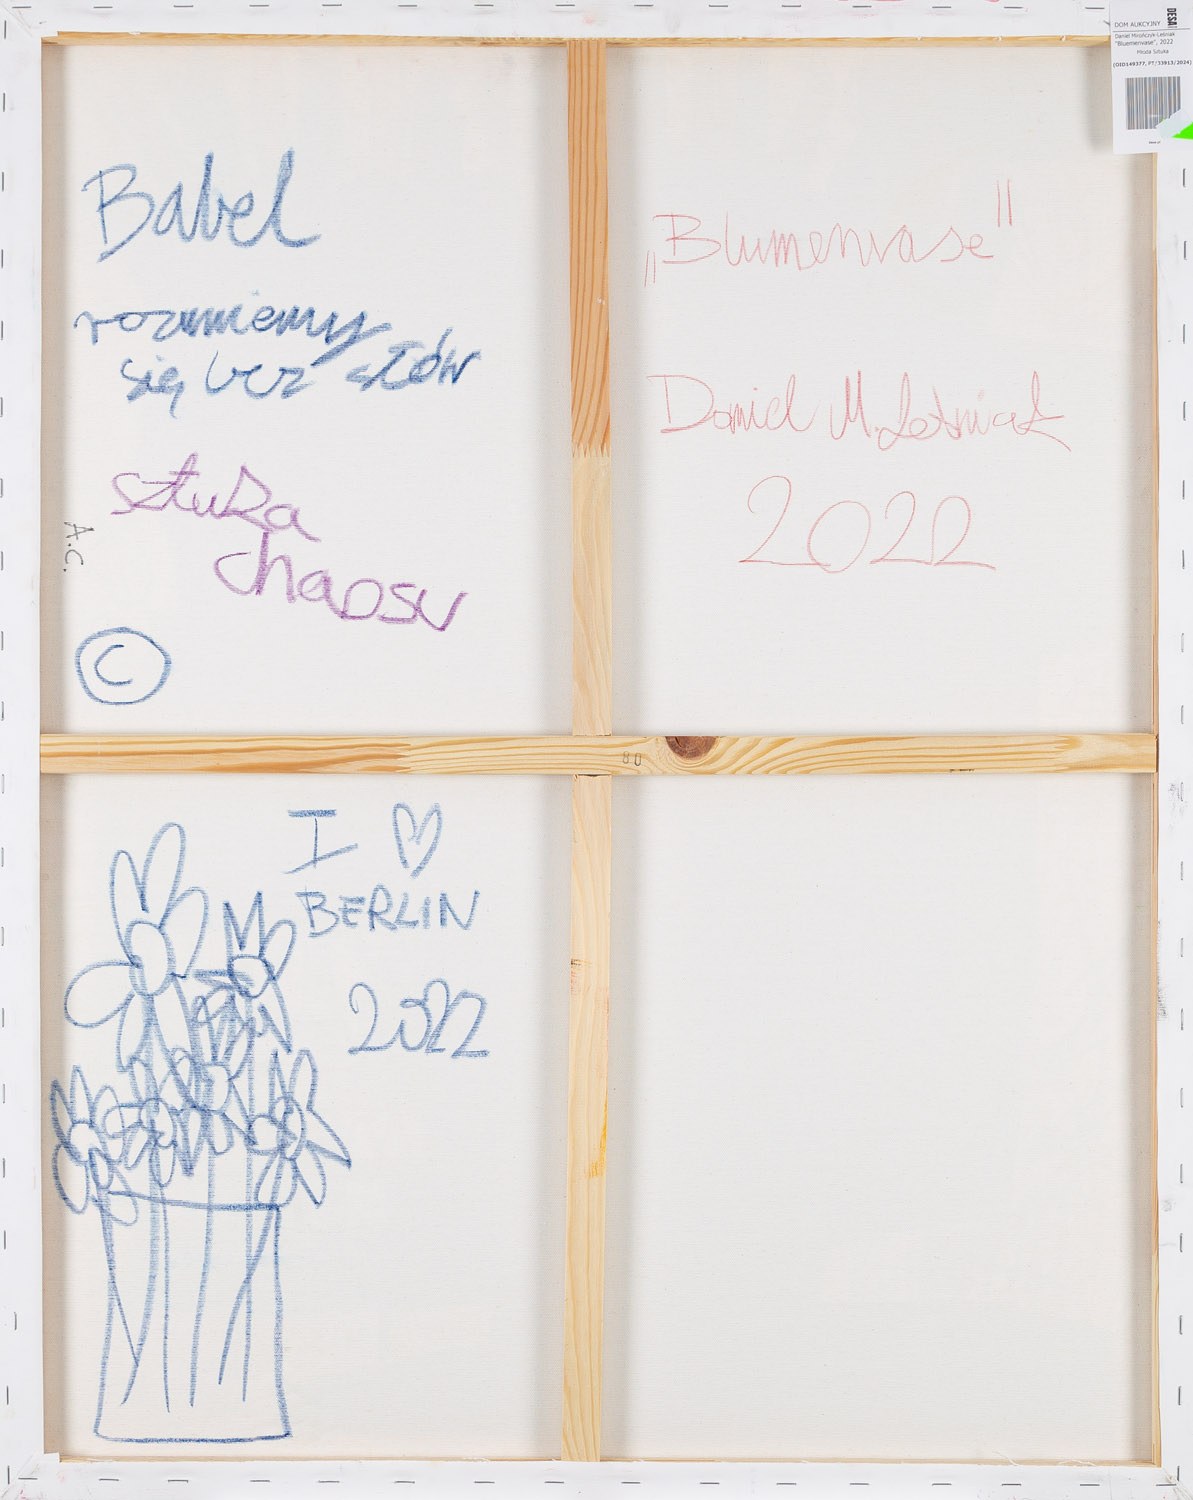 Babel
rozumiemy
się bez słów
sztuka
chaosu
A.C.
©
„Blumenvase"
Daniel M. Leśniak
2022
80
I ♡
BERLIN
2022
DESA
DOM AUKCYJNY
Daniel Mirończyk-Leśniak
"Bluemenvase", 2022
Młoda Sztuka
(OID149377, PT/33913/2024)